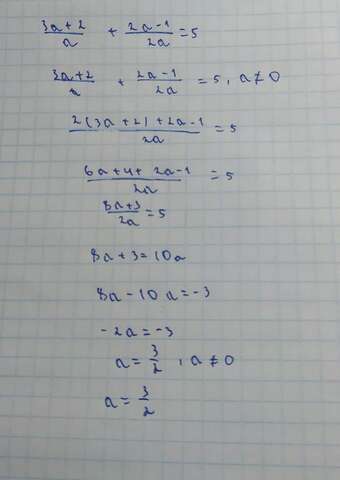 (3a+2)/a + (2a-1)/2a = 5
(3a+2)/a + (2a-1)/2a = 5, a≠0
(2(3a+2)+2a-1)/2a = 5
(6a+4+2a-1)/2a = 5
(8a+3)/2a = 5
8a+3=10a
8a-10a=-3
-2a=-3
a=3/2, a≠0
a=3/2